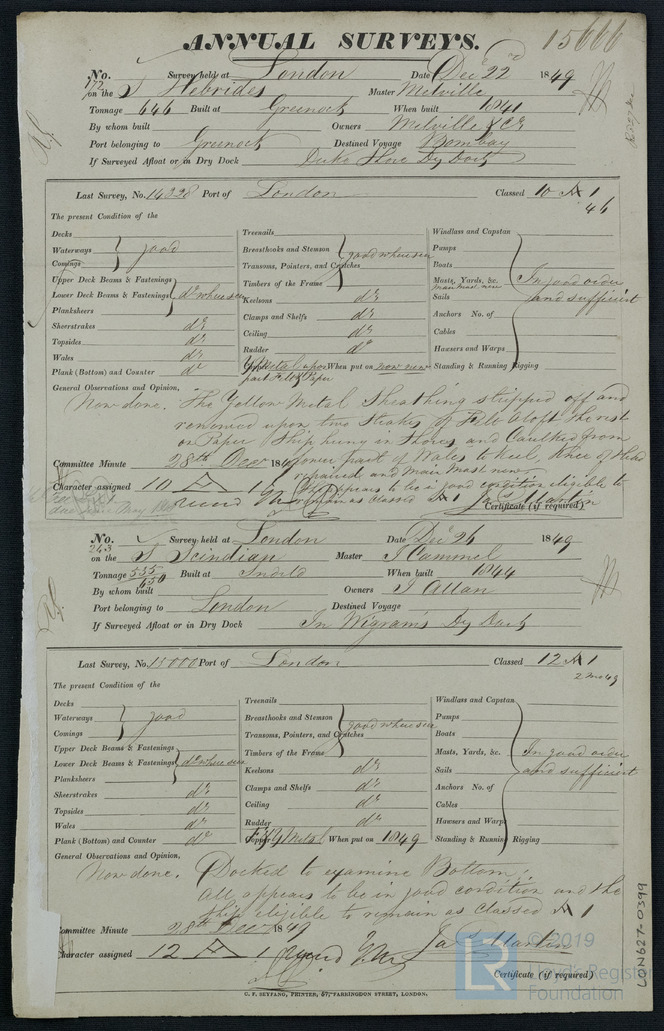 ANNUAL SURVEYS. 15666
No. 172 Survey held at London Date Decr 22nd 1849
on the S Hebrides Master Melville
Tonnage 646 Built at Greenock When built 1841
By whom built Owners Melville & Co
Port belonging to Greenock Destined Voyage Bombay
If Surveyed Afloat or in Dry Dock Duke Shore Dry Dock
Last Survey, No. 14328 Port of London Classed 10 A 1
46
The present Condition of the
Decks
Waterways
Comings
good
Upper Deck Beams & Fastenings
Lower Deck Beams & Fastenings
Planksheers
do where seen
Sheerstrakes do
Topsides do
Wales do
Plank (Bottom) and Counter do
Treenails
Breasthooks and Stemson
Transoms, Pointers, and Crutches
Timbers of the Frame
good where seen
Keelsons do
Clamps and Shelfs do
Ceiling do
Rudder do
Copper Y Metal upon part Felt & Paper When put on now new
Windlass and Capstan
Pumps
Boats
Masts, Yards, &c. Main mast new
Sails
Anchors No. of
Cables
Hawsers and Warps
Standing & Running Rigging
In good order
and sufficient
General Observations and Opinion,
Now done. The Yellow Metal Sheathing stripped off and
renewed upon two Strakes of Felt aloft the rest
on Paper Ship hung in Shores and Caulked from
lower part of Wales to Keel, Knee of Head
repaired and Main Mast new
Ship appears to be in good condition eligible to
remain as Classed A 1 Jas Martin
Committee Minute 28th Decr 1849
Character assigned 10 A 1
Certificate (if required)
No. 243 Survey held at London Date Decr 26 1849
on the S Scindian Master J Cammel
Tonnage 535 650 Built at Sunderld When built 1844
By whom built Owners J Allan
Port belonging to London Destined Voyage
If Surveyed Afloat or in Dry Dock In Wigrams Dry Dock
Last Survey, No. 15000 Port of London Classed 12 A 1
2 Mo 49
The present Condition of the
Decks
Waterways
Comings
good
Upper Deck Beams & Fastenings
Lower Deck Beams & Fastenings
Planksheers
do where seen
Sheerstrakes do
Topsides do
Wales do
Plank (Bottom) and Counter do
Treenails
Breasthooks and Stemson
Transoms, Pointers, and Crutches
Timbers of the Frame
good where seen
Keelsons do
Clamps and Shelfs do
Ceiling do
Rudder do
Copper F & Y Metal When put on 1849
Windlass and Capstan
Pumps
Boats
Masts, Yards, &c.
Sails
Anchors No. of
Cables
Hawsers and Warps
Standing & Running Rigging
In good order
and sufficient
General Observations and Opinion,
Now done. Docked to examine Bottom:
All appears to be in good condition and the
Ship eligible to remain as Classed A 1
Committee Minute 28th Decr 1849
Jas Martin
Character assigned 12 A 1
Certificate (if required)
C. F. SEYFANG, PRINTER, 57, FARRINGDON STREET, LONDON.
LON627-0399
© 2019
LR Lloyd's Register
Foundation